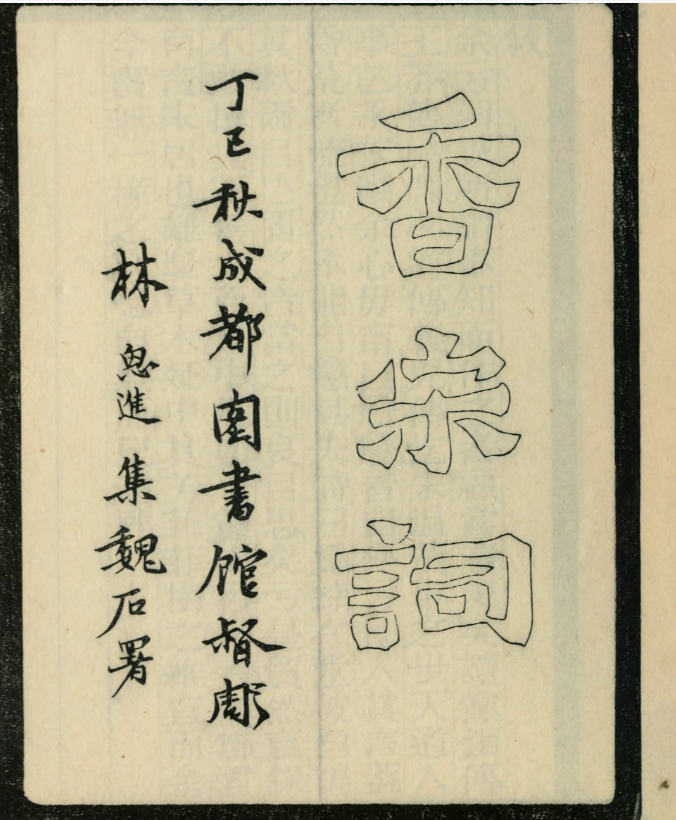 香宋詞
丁巳秋成都圖書館督彫
林思進集魏石署